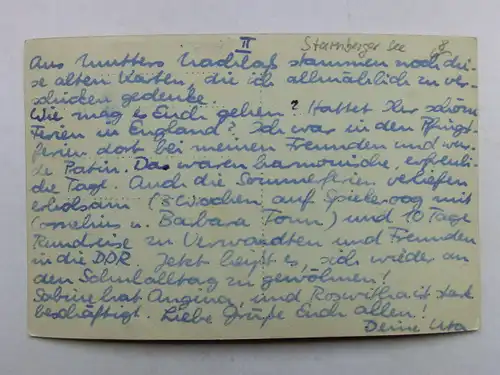 II
Starnberger See
8
Aus Mutters Nachlaß stammen noch die-
se alten Karten, die ich allmählich zu ver-
schicken gedenke.
Wie mag es Euch gehen? Hattet Ihr schöne
Ferien in England? Ich war in den Pfingst-
ferien dort bei meinen Freunden und wur-
de Patin. Das waren harmonische, erfreuli-
che Tage. Auch die Sommerferien verliefen
erholsam (3 Wochen auf Spiekeroog mit
Cornelius u. Barbara) und 10 Tage
Rundreise zu Verwandten und Freunden
in die DDR. Jetzt heißt es, sich wieder an
den Schulalltag zu gewöhnen!
Sabine hat Angina, und Roswitha ist stark
beschäftigt. Liebe Grüße Euch allen!
Deine Uta